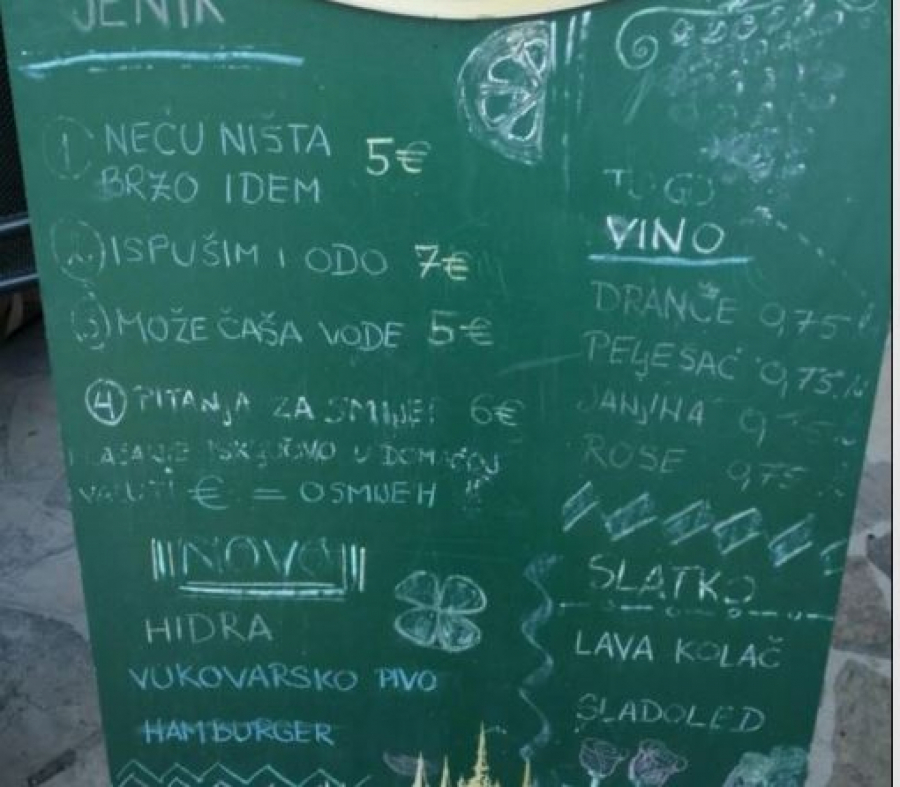 JENIK
1 NEĆU NIŠTA 5€
BRZO IDEM
2 ISPUŠIM I ODO 7€
3 MOŽE ČAŠA VODE 5€
4 PITANJA ZA SMIJEH 6€
PLAĆANJE ISKLJUČIVO U DOMAĆOJ
VALUTI € = OSMIJEH
NOVO
HIDRA
VUKOVARSKO PIVO
HAMBURGER
TO GO
VINO
DRANČE 0,75 l
PELJEŠAC 0,75 l
JANJINA
ROSE 0,75
SLATKO
LAVA KOLAČ
SLADOLED